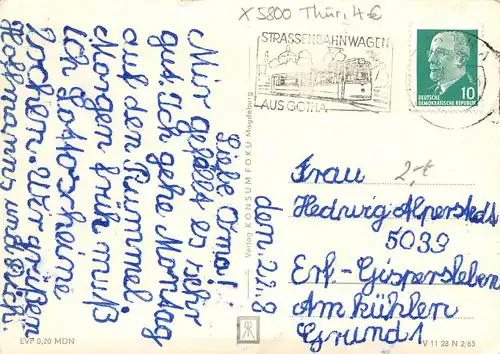 X 5800 Thür, 4 €
STRASSENBAHNWAGEN
AUS GOTHA
10
DEUTSCHE
DEMOKRATISCHE REPUBLIK
den. 22. 8
Liebe Oma!
Mir gefällt es sehr
gut. Ich gehe Montag
auf den Rummel
Morgen früh muß
Ich Lottoscheine
lochen. Wir grüßen
und Dich.
Verlag KONSUM FOKU Magdeburg
Frau
Hedwig Alperstedt
5039
Erf.-Gispersleben
Am kühlen
Grund 1
EVP 0,20 MDN
V 11 28 N 2/65